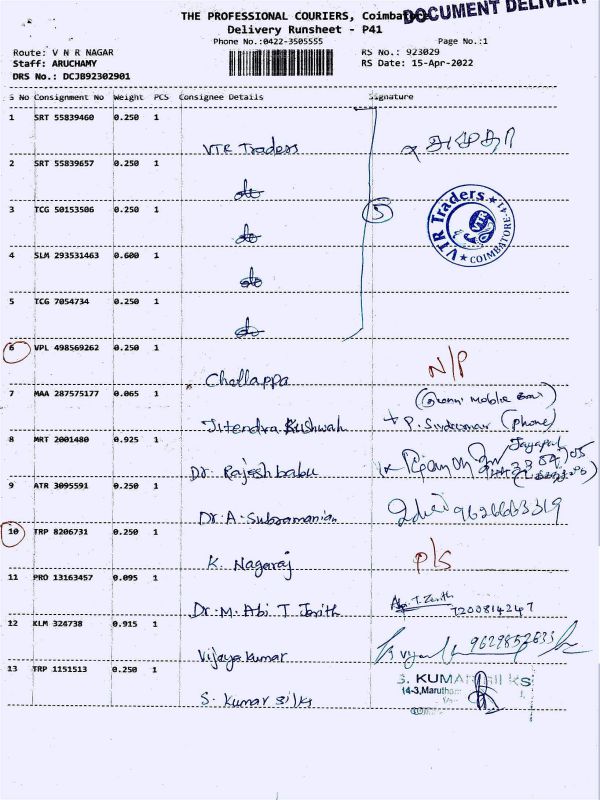 THE PROFESSIONAL COURIERS, Coimbato
DOCUMENT DELIVERY
Delivery Runsheet - P41
Phone No.:0422-3505555
Page No.:1
Route: V N R NAGAR
RS No.: 923029
Staff: ARUCHAMY
RS Date: 15-Apr-2022
DRS No.: DCJB92302901
S No Consignment No Weight PCS Consignee Details Signature
1 SRT 55839460 0.250 1
VTR Traders
அமுதா
2 SRT 55839657 0.250 1
do
3 TCG 50153506 0.250 1
5
VTR Traders ★ COIMBATORE-41 ★
do
4 SLM 293531463 0.600 1
do
5 TCG 7054734 0.250 1
do
6 VPL 498569262 0.250 1
N/P
Chellappa
7 MAA 287575177 0.065 1
Jitendra Kushwah
P. Sivakumar (phone)
8 MRT 2001480 0.925 1
Jayapal
Dr. Rajesh babu
9 ATR 3095591 0.250 1
Dr. A. Subramanian
10 TRP 8206731 0.250 1
P/S
K. Nagaraj
11 PRO 13163457 0.095 1
Dr. M. Abi T Jenith
7200814247
12 KLM 324738 0.915 1
Vijaya kumar
13 TRP 1151513 0.250 1
S. KUMAR Silks
14-3, Marutham
S. Kumar Silks